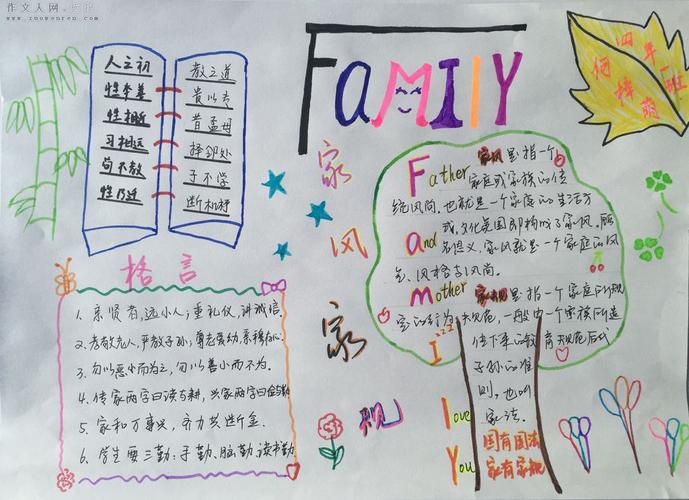 作文人网
www.zuowenren.com
FaMIlY
四年一班
人之初
性本善
性相近
习相远
苟不教
性乃迁
教之道
贵以专
昔孟母
择邻处
子不学
断机杼
家风家规
格言
1. 亲贤者,远小人;重礼仪,讲诚信.
2. 孝敬老人,严教子孙;尊老爱幼,亲穆存心.
3. 勿以恶小而为之,勿以善小而不为.
4. 传家两字曰读与耕,兴家两字曰俭与勤
5. 家和万事兴,齐力共断金.
6. 学生要三勤:手勤、脑勤、读书勤
Father
and
Mother
I
love
You
家风是指一个
家庭或家族的传
统风尚.也就是一个家庭的生活方
式.文化氛围即构成了家风.顾
名思义,家风就是一个家庭的风
气、风格与风尚.
家规是指一个家庭所规
定的行为规范,一般由一个家族所遗
传下来的教育规范后代
子孙的准
则,也叫
家法.
国有国法
家有家规